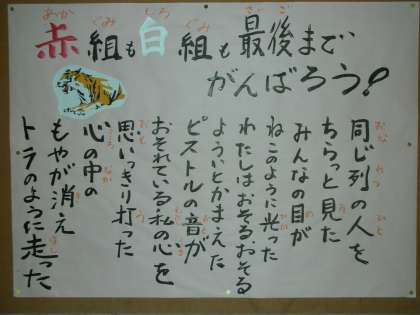 赤組も白組も最後まで
がんばろう!
同じ列の人を
ちらっと見た
みんなの目が
ねこのように光った
わたしはおそるおそる
よういとかまえた
ピストルの音が
おそれている私の心を
思いっきり打った
心の中の
もやが消え
トラのように走った